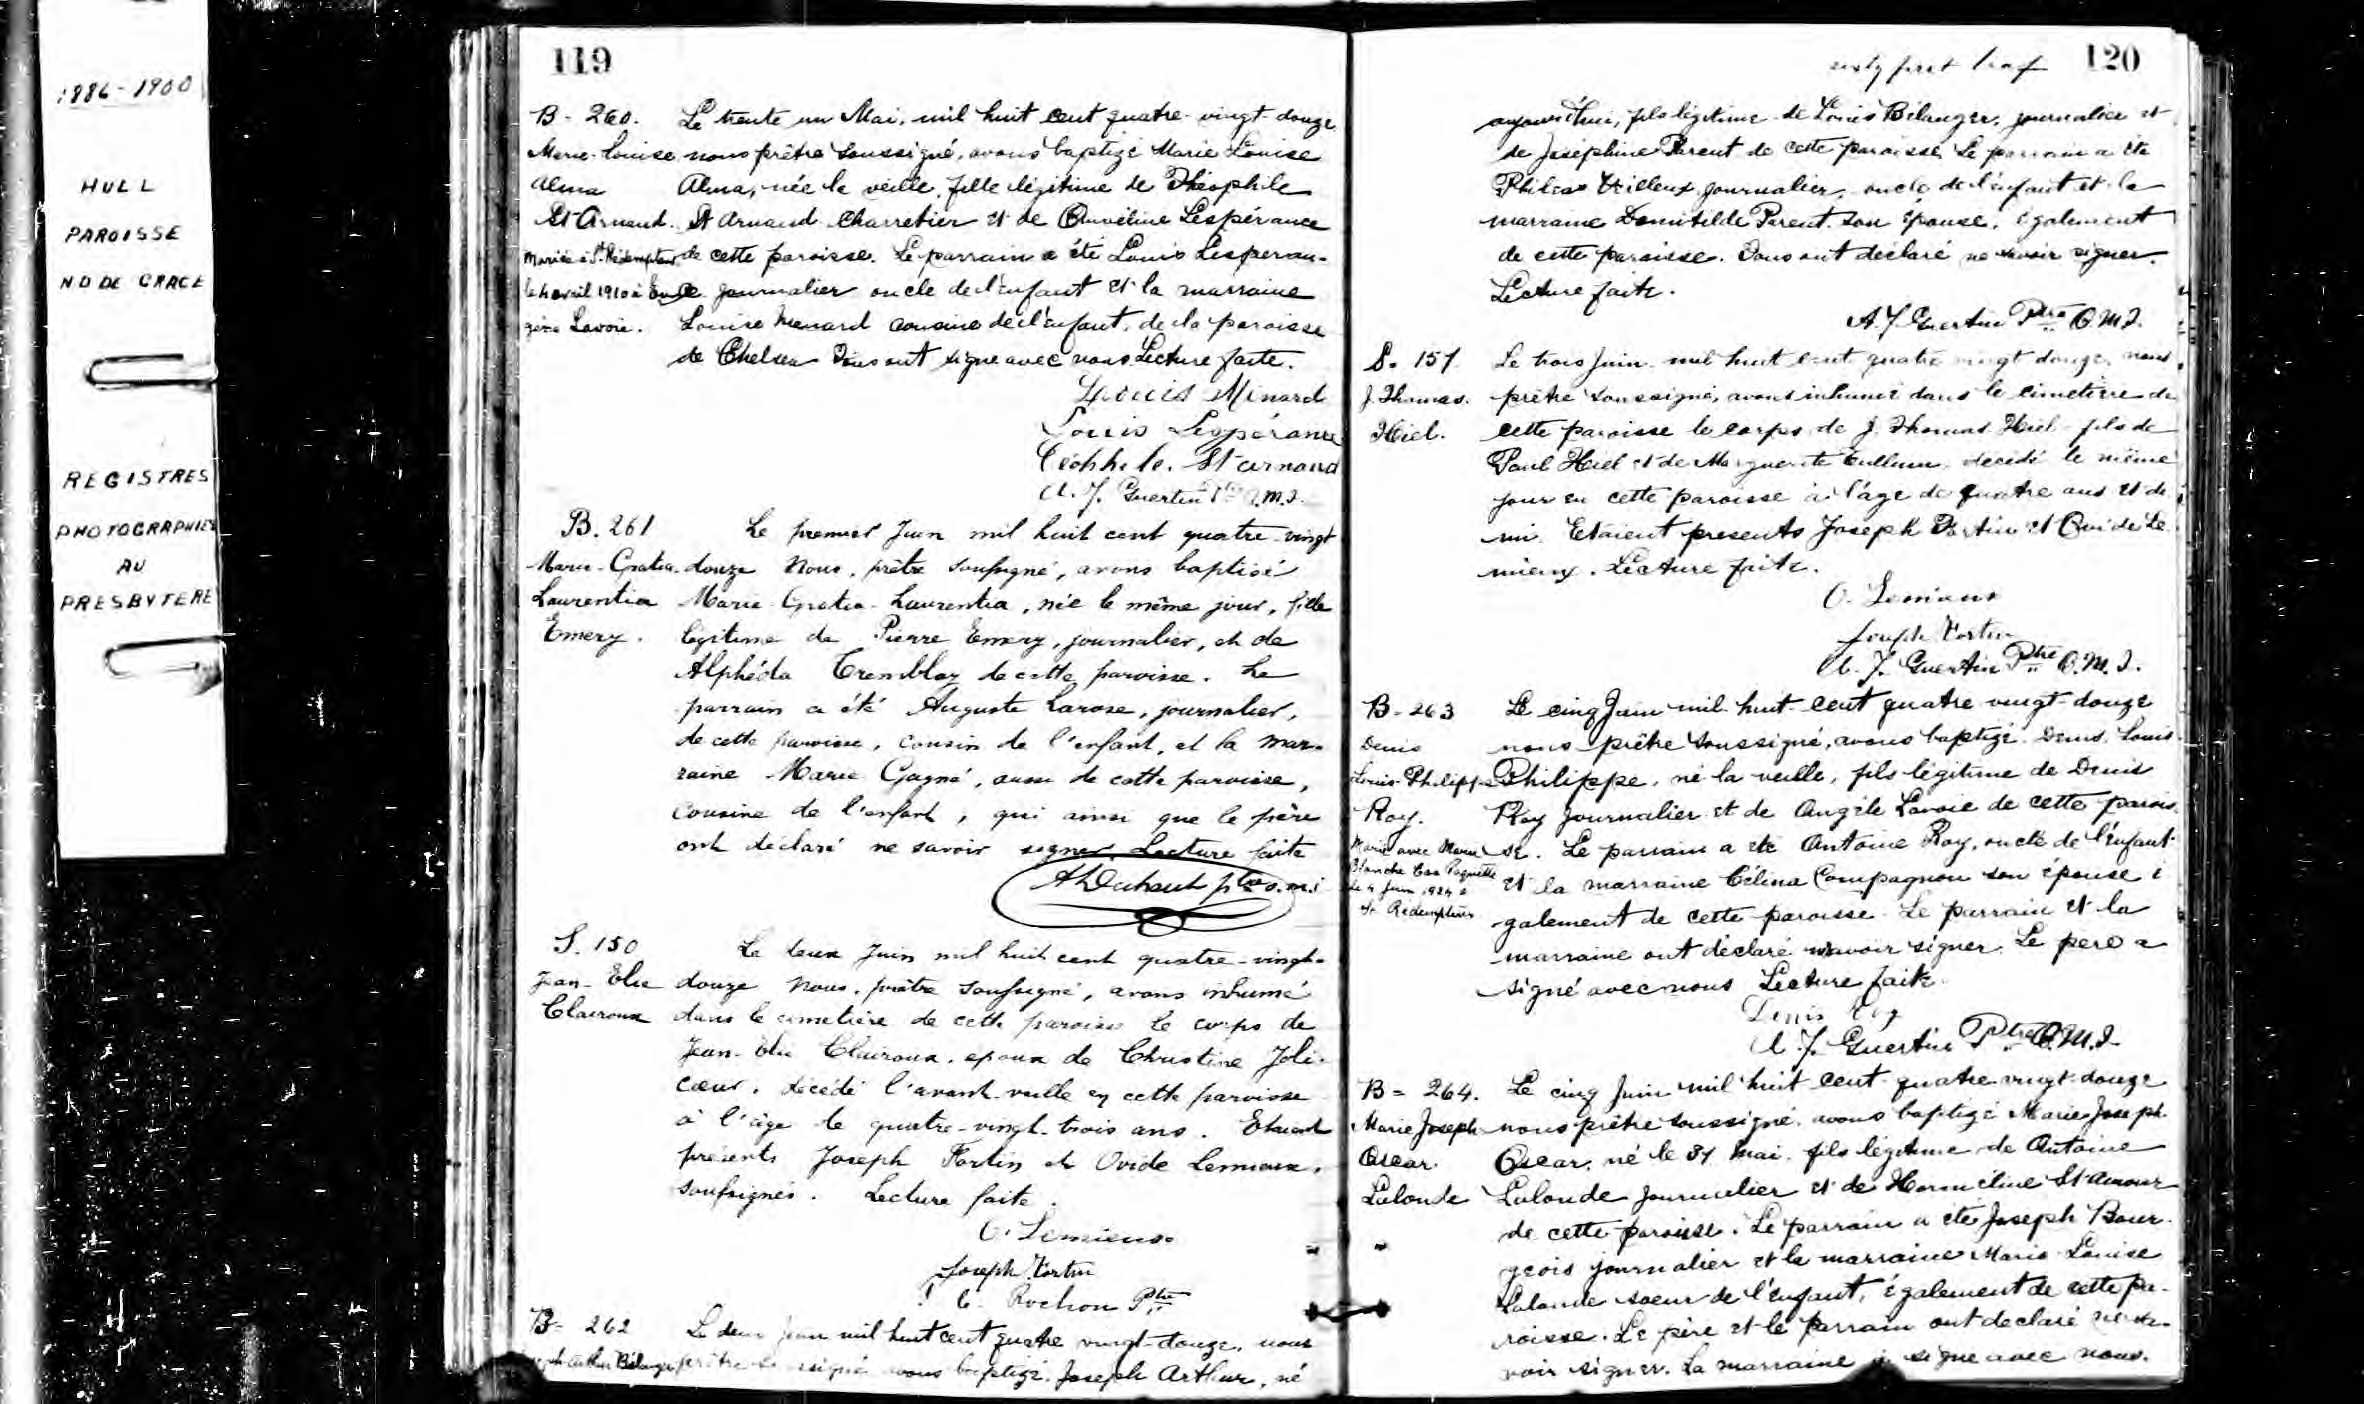 1886-1900
HULL
PAROISSE
N D DE GRACE
REGISTRES
PHOTOGRAPHIES
AU
PRESBYTERE
119
B - 260. Le trente un Mai, mil huit cent quatre-vingt-douze
Marie-Louise nous prêtre soussigné, avons baptizé Marie Louise
Alma Alma, née la veille, fille légitime de Théophile
St Arnaud. St Arnaud charretier et de Lespérance
Mariée à St Rédempteur de cette paroisse. Le parrain a été Louis Lesperan-
le 4 avril 1910 à Eu- ce journalier oncle de l'enfant et la marraine
gène Lavoie. Louise Menard cousine de l'enfant, de la paroisse
de Chelsea Tous ont signé avec nous Lecture faite.
Louis Minard
Louis Lespérance
Téophile St arnaud
A. J. Guertin Ptre O.M.I.
B. 261 Le premier Juin mil huit cent quatre-vingt
Marie-Gratia- douze Nous, prêtre soussigné, avons baptisé
Laurentia Marie-Gratia-Laurentia, née le même jour, fille
Emery. légitime de Pierre Emery, journalier, et de
Alphéda Tremblay de cette paroisse. Le
parrain a été Auguste Larose, journalier,
de cette paroisse, cousin de l'enfant, et la mar-
raine Marie Gagné, aussi de cette paroisse,
cousine de l'enfant, qui ainsi que le père
ont déclaré ne savoir signer. Lecture faite
ptre o.m.i
S. 150 Le deux Juin mil huit cent quatre-vingt-
Jean-Elie douze Nous, prêtre soussigné, avons inhumé
Clairoux dans le cimetière de cette paroisse le corps de
Jean-Elie Clairoux, epoux de Christine Joli-
cœur, décédé l'avant-veille en cette paroisse
à l'âge de quatre-vingt-trois ans. Etaient
présents Joseph Fortin et Ovide Lemieux,
soussignés. Lecture faite.
O. Lemieux
Joseph Fortin
C. Rochon Ptre
B - 262 Le deux Juin mil huit cent quatre vingt-douze, nous
Joseph Arthur Bélanger prêtre soussigné avons baptizé Joseph Arthur, né
sixty first leaf 120
aujourd'hui, fils légitime de Louis Bélanger, journalier et
de Joséphine Parent de cette paroisse. Le parrain a été
Philéas Veilleux journalier, oncle de l'enfant et la
marraine Domitilde Parent son épouse, également
de cette paroisse. Tous ont déclaré ne savoir signer.
Lecture faite.
A. J. Guertin Ptre O.M.I.
S. 151 Le trois Juin mil huit cent quatre vingt douze, nous
J. Thomas. prêtre soussigné, avons inhumé dans le cimetière de
Hiel. cette paroisse le corps de J. Thomas Hiel fils de
Paul Hiel et de Marguerite Cullum, décédé le même
jour en cette paroisse à l'âge de quatre ans et de
mi. Etaient presents Joseph Fortin et Ovide Le
mieux. Lecture faite.
O. Lemieux
Joseph Fortin
A. J. Guertin Ptre O.M.I.
B - 263 Le cinq Juin mil huit cent quatre vingt-douze
Denis nous prêtre soussigné, avons baptizé Denis, Louis
Louis Philippe Philippe, né la veille, fils légitime de Denis
Roy. Roy journalier et de Angèle Lavoie de cette parois
Marié avec Marie se. Le parrain a été Antoine Roy, oncle de l'enfant
Blanche Eva Paquette et la marraine Célina Compagnon son épouse é
le 4 Juin 1924 à galement de cette paroisse. Le parrain et la
St Rédempteur marraine ont déclaré ne savoir signer. Le pere a
signé avec nous Lecture faite.
Denis Roy
A. J. Guertin Ptre O.M.I.
B = 264. Le cinq Juin mil huit cent quatre vingt-douze
Marie Joseph nous prêtre soussigné, avons baptizé Marie Joseph
Oscar. Oscar, né le 31 Mai, fils légitime de Antoine
Lalonde Lalonde journalier et de Herméline St Amour
de cette paroisse. Le parrain a été Joseph Bour-
geois journalier et la marraine Marie Louise
Lalonde soeur de l'enfant, également de cette pa-
roisse. Le père et le parrain ont declaré ne sa-
voir signer. La marraine a signé avec nous.